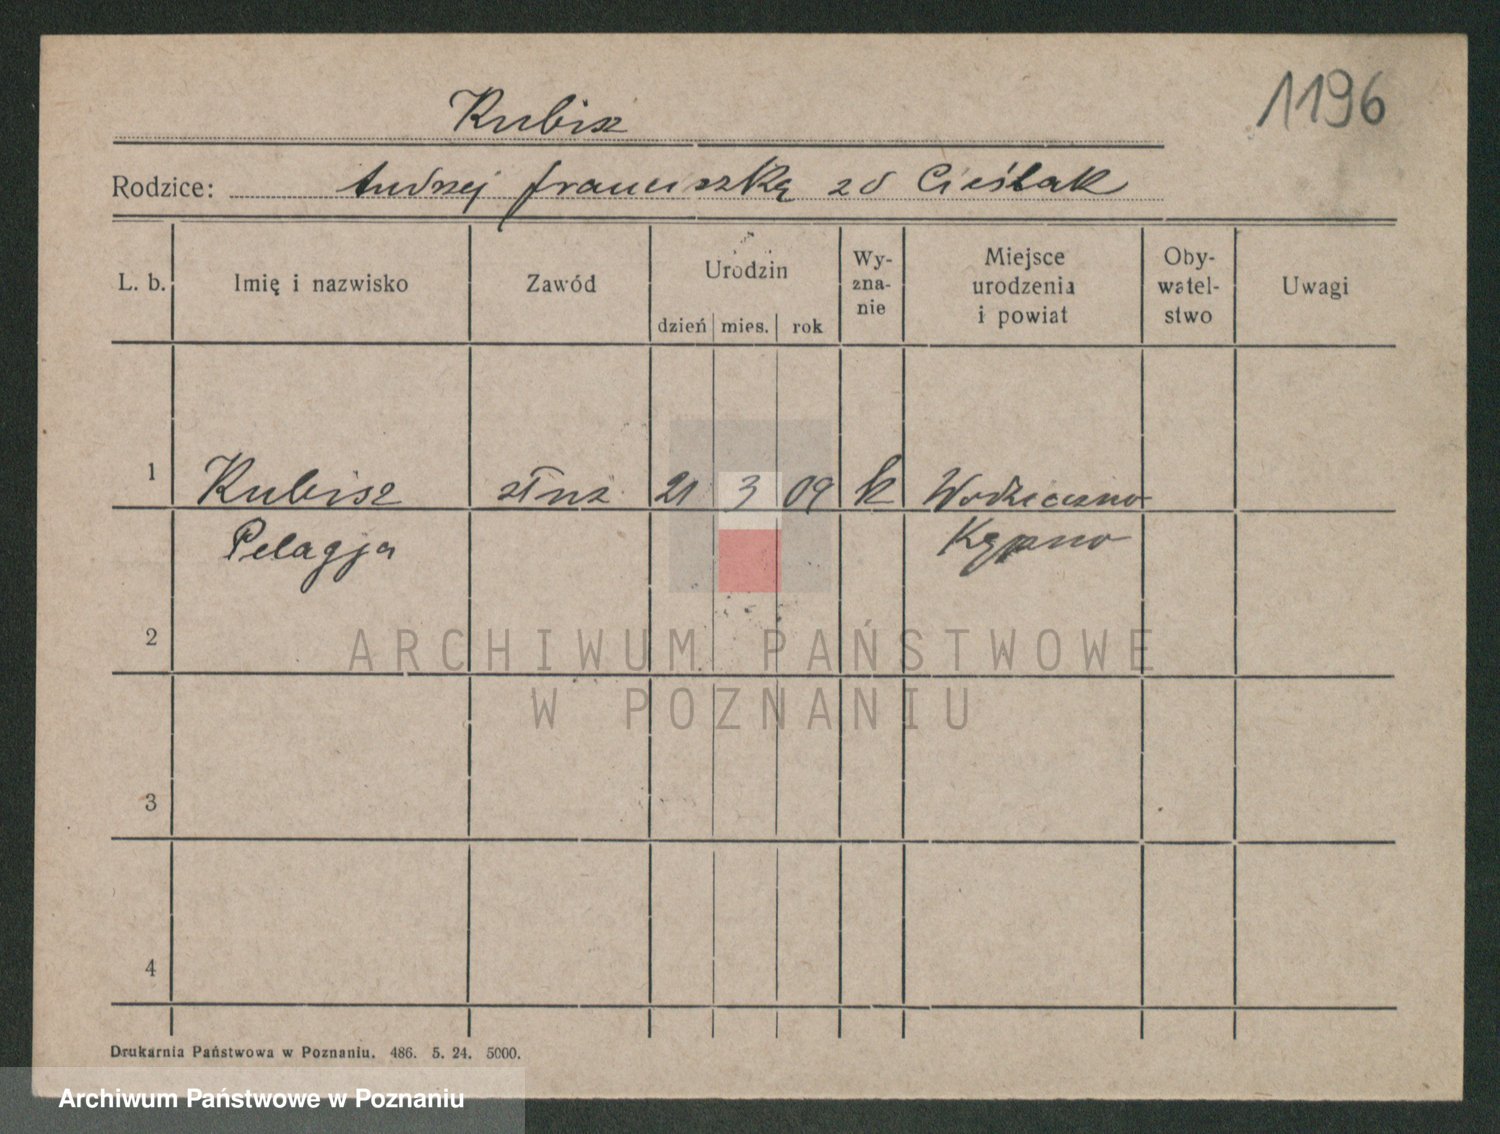 1196
Kubisz
Rodzice: Andrzej Franciszka zd Cieślak
L. b. Imię i nazwisko Zawód Urodzin Wy-zna-nie Miejsce urodzenia i powiat Oby-watel-stwo Uwagi
dzień mies. rok
1 Kubisz służ 21 3 09 k
Pelagja Kępno
2
ARCHIWUM PAŃSTWOWE
W POZNANIU
3
4
Drukarnia Państwowa w Poznaniu. 486. 5. 24. 5000.
Archiwum Państwowe w Poznaniu